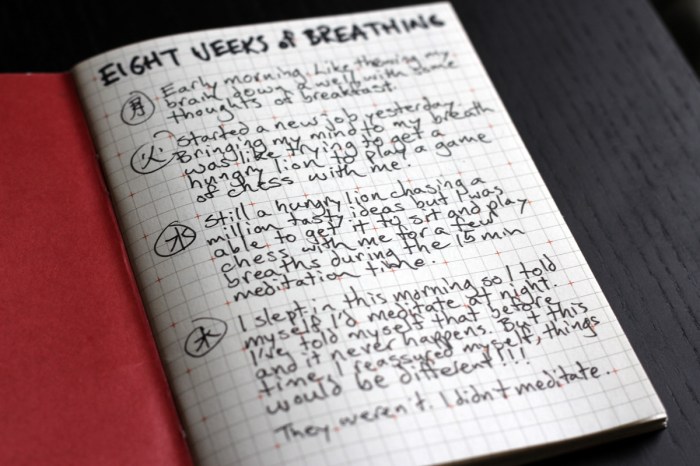 EIGHT WEEKS of BREATHING
月 Early morning. Like throwing my
brain down a well with some
thoughts of breakfast.
火 Started a new job yesterday.
Bringing my mind to my breath
was like trying to get a
hungry lion to play a game
of chess with me.
水 Still a hungry lion chasing a
million tasty ideas but I was
able to get it to sit and play
chess with me for a few
breaths during the 15 min
meditation time.
木 I slept in this morning so I told
myself I'd meditate at night.
I've told myself that before
and it never happens. But this
time, I reassured myself, things
would be different!!!
They weren't. I didn't meditate.